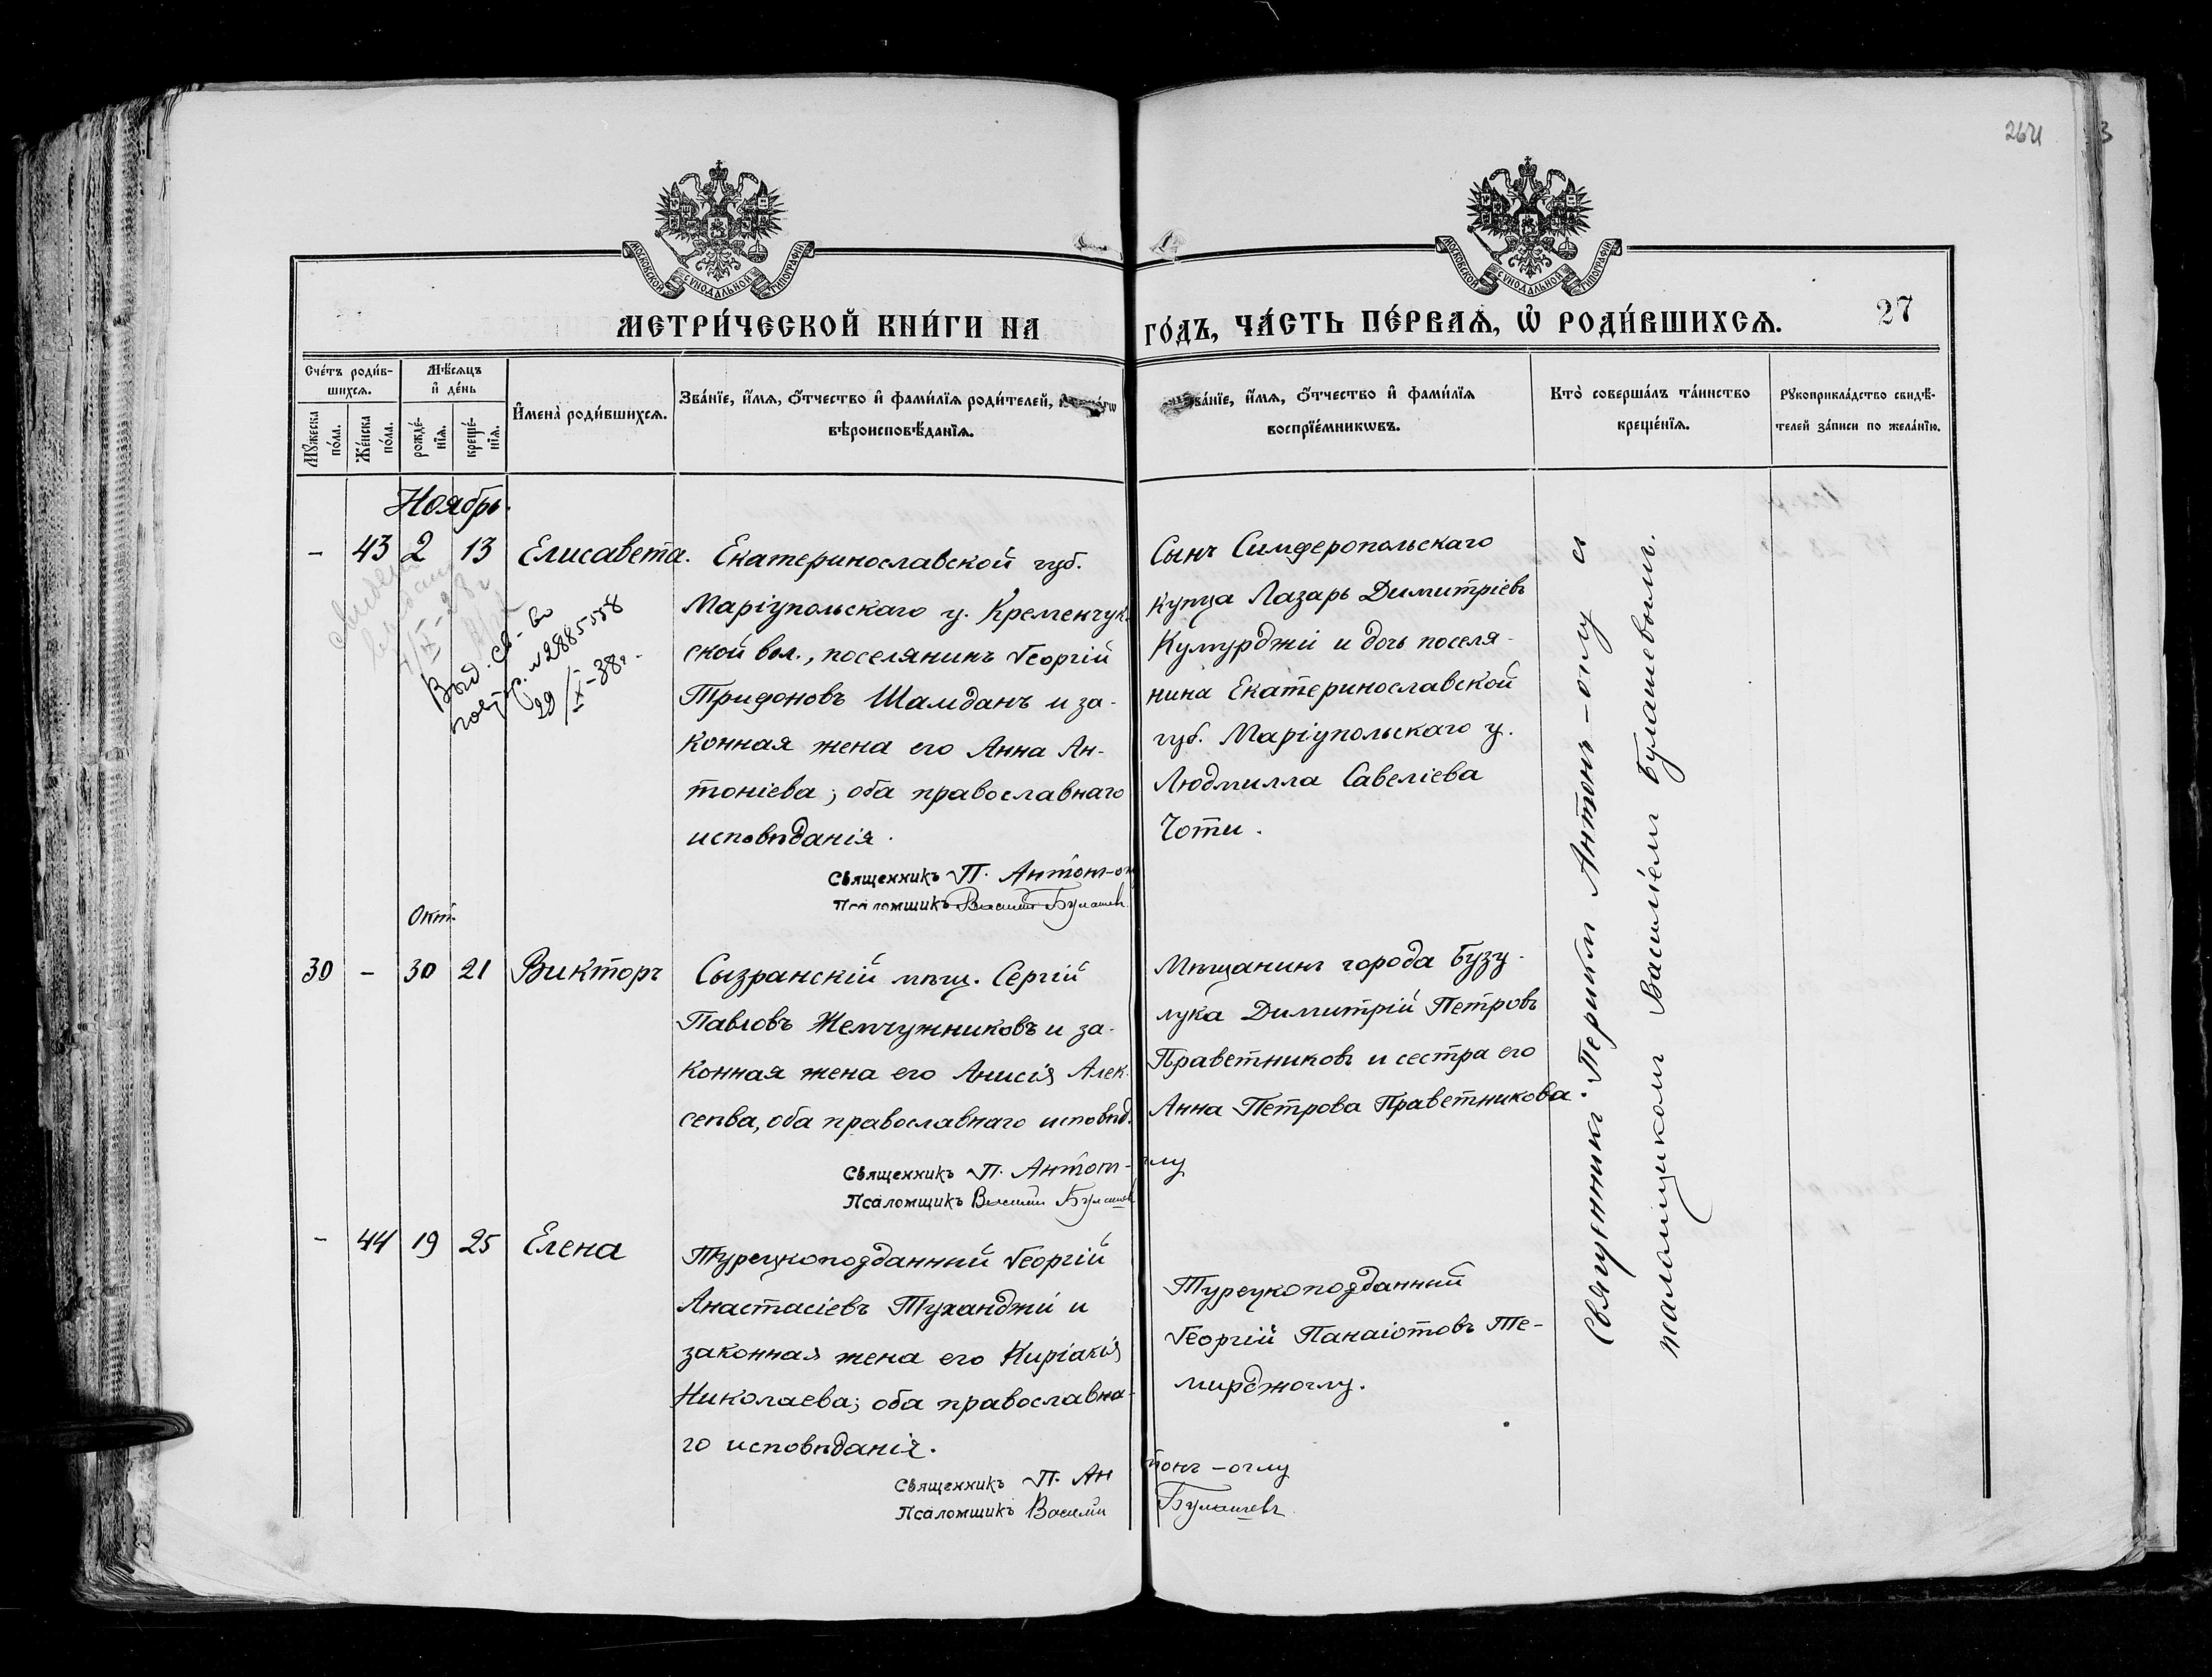 264
3
МОСКОВСКОЙ СУНОДАЛЬНОЙ ТИПОГРАФІИ
МОСКОВСКОЙ СУНОДАЛЬНОЙ ТИПОГРАФІИ
МЕТРИ́ЧЕСКОЙ КНИ́ГИ НА
ГО́ДЪ, ЧА́СТЬ ПЕ́РВАѦ, Ѽ РОДИ́ВШИХСѦ.
27
Сче́тъ роди́в-
шихсѧ.
Мꙋ́жеска по́ла.
Же́нска по́ла.
Мѣ́сѧцъ
и҆ де́нь
рожде́-
нїѧ.
креще́-
нїѧ.
И҆мена̀ роди́вшихсѧ.
Зва́нїе, и҆́мѧ, ѻ҆́тчество и҆ фами́лїѧ роди́телей,
вѣроисповѣ́данїѧ.
Зва́нїе, и҆́мѧ, ѻ҆́тчество и҆ фами́лїѧ
воспрїе́мникѡвъ.
Кто̀ соверша́лъ та́инство
креще́нїѧ.
Рꙋкоприкла́дство свидѣ́-
телей за́писи по жела́нїю.
Ноябрь.
- 43 2 13 Елисавета.
Выд. св-во
29/X-38г.
Екатеринославской губ.
Маріупольскаго у. Кременчук-
ской вол., поселянинъ Георгій
Трифоновъ Шамданъ и за-
конная жена его Анна Ан-
тоніева; оба православнаго
исповѣданія.
Священникъ П. Антон-оглу
Псаломщикъ Василій Булашевъ
Сынъ Симферопольскаго
купца Лазарь Димитріевъ
Кумурджи и дочь поселя-
нина Екатеринославской
губ. Маріупольскаго у.
Людмилла Савеліева
Чоти.
Окт.
30 - 30 21 Викторъ
Сызранскій мѣщ. Сергій
Павловъ Жемчужниковъ и за-
конная жена его Анисія Алек-
сеева, оба православнаго исповѣд.
Священникъ П. Антон-оглу
Псаломщикъ Василій Булашевъ
Мѣщанинъ города Бузу-
лука Димитрій Петровъ
Праветниковъ и сестра его
Анна Петрова Праветникова.
- 44 19 25 Елена
Турецкоподданный Георгій
Анастасіевъ Туханджи и
законная жена его Киріакія
Николаева; оба православна-
го исповѣданія.
Священникъ П. Антонъ-оглу
Псаломщикъ Василій Булашевъ
Турецкоподданный
Георгій Панаіотовъ Те-
мирджоглу.
Священникъ Периклъ Антонъ-оглу съ
псаломщикомъ Василіемъ Булашевымъ.